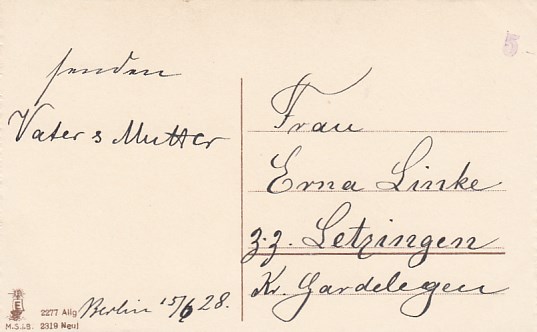 5
senden
Vater & Mutter
Frau
Erna Linke
z.z. Letzingen
Kr. Gardelegen
E
2277 Allg
M.S.i.B. 2319 Neuj
Berlin 15/6 28.